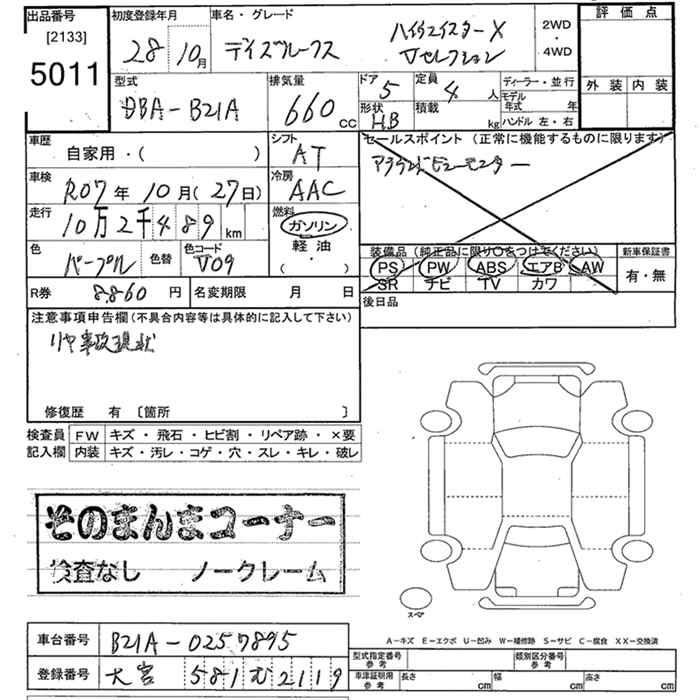 出品番号
[2133]
5011
初度登録年月
28 10月
車名・グレード
デイズルークス ハイウェイスターX
Vセレクション
2WD
・
4WD
評価点
外装 内装
型式
DBA-B21A
排気量
660 CC
ドア 5
形状 HB
定員 4 人
積載 kg
ディーラー・並行
モデル
年式 年
ハンドル 左・右
車歴
自家用・( )
シフト
AT
セールスポイント (正常に機能するものに限ります)
アラウンドビューモニター
車検
R07年 10月(27日)
冷房
AAC
走行
10万2千489 km
燃料
ガソリン
軽油
( ・ )
色
パープル
色替
色コード
V09
装備品 (純正品に限り○をつけてください)
PS PW ABS エアB AW
SR ナビ TV カワ
新車保証書
有・無
R券 8860 円
名変期限 月 日
後日品
注意事項申告欄(不具合内容等は具体的に記入して下さい)
リヤ事故現状
修復歴 有 [箇所 ]
検査員
記入欄
FW キズ・飛石・ヒビ割・リペア跡・×要
内装 キズ・汚レ・コゲ・穴・スレ・キレ・破レ
そのまんまコーナー
検査なし ノークレーム
スペア
A-キズ E-エクボ U-凹み W-補修跡 S-サビ C-腐食 XX-交換済
車台番号 B21A-0257895
登録番号 大宮 581む2119
型式指定番号
参考
類別区分番号
参考
車庫証明用
参考
長さ cm
幅 cm
高さ cm